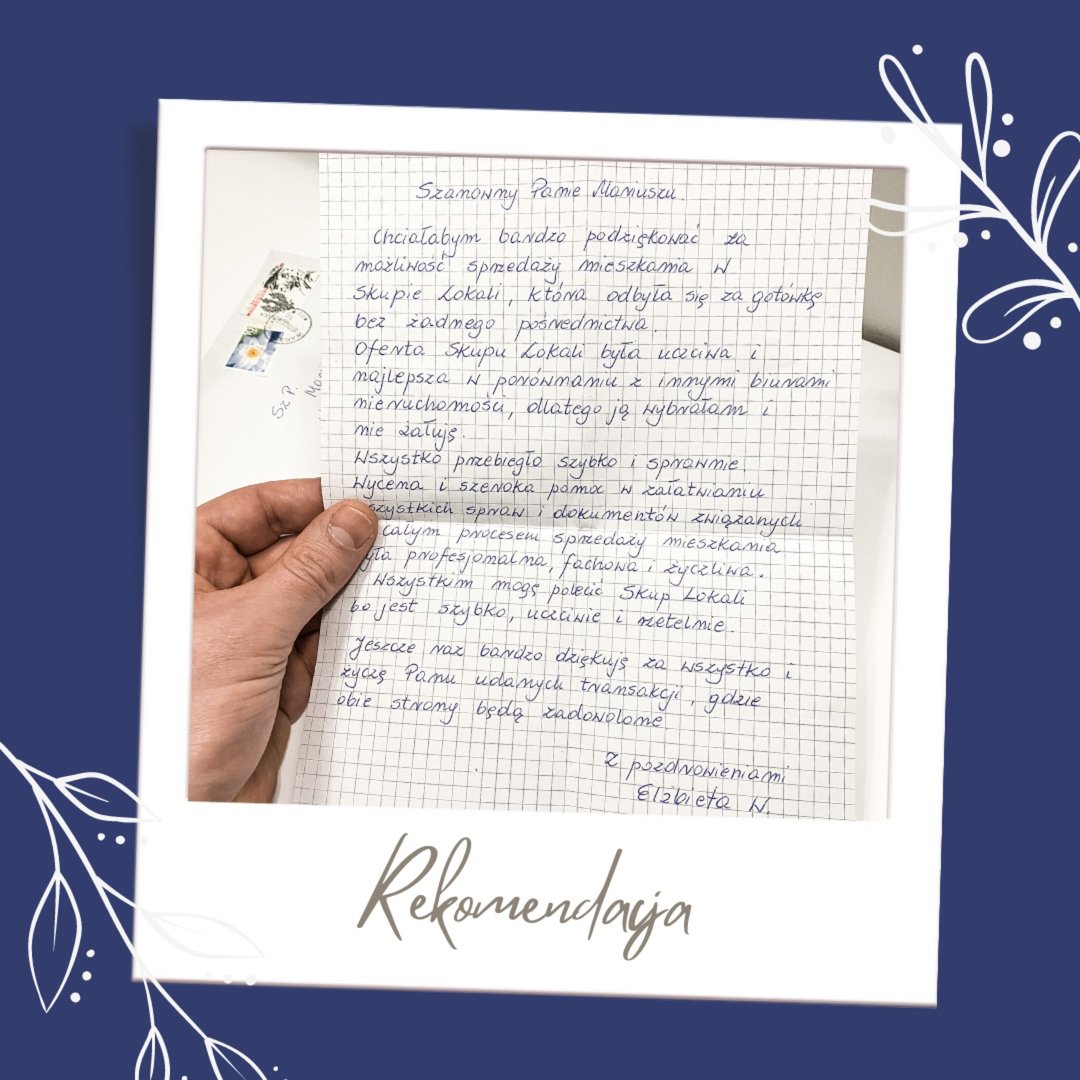 Szanowny Panie Mariuszu
Chciałabym bardzo podziękować za
możliwość sprzedaży mieszkania w
Skupie Lokali, która odbyła się za gotówkę
bez żadnego pośrednictwa.
Oferta Skupu Lokali była uczciwa i
najlepsza w porównaniu z innymi biurami
nieruchomości, dlatego ją wybrałam i
nie żałuję.
Wszystko przebiegło szybko i sprawnie.
Wycena i szeroka pomoc w załatwianiu
szystkich spraw i dokumentów związanych
całym procesem sprzedaży mieszkania
yła profesjonalna, fachowa i życzliwa.
Wszystkim mogę polecić Skup Lokali
bo jest szybko, uczciwie i rzetelnie.
Jeszcze raz bardzo dziękuję za wszystko i
życzę Panu udanych transakcji, gdzie
obie strony będą zadowolone
Z pozdrowieniami
Elżbieta W.
Sz. P.
Rekomendacja